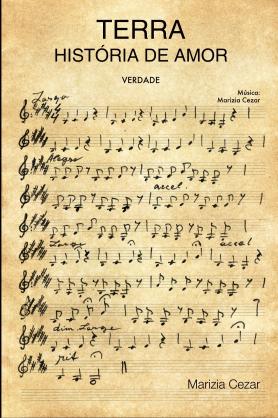 TERRA
HISTÓRIA DE AMOR
VERDADE
Música:
Marizia Cezar
Largo
Alegro
accel.
Largo
accel
dim. Large
rit
Marizia Cezar